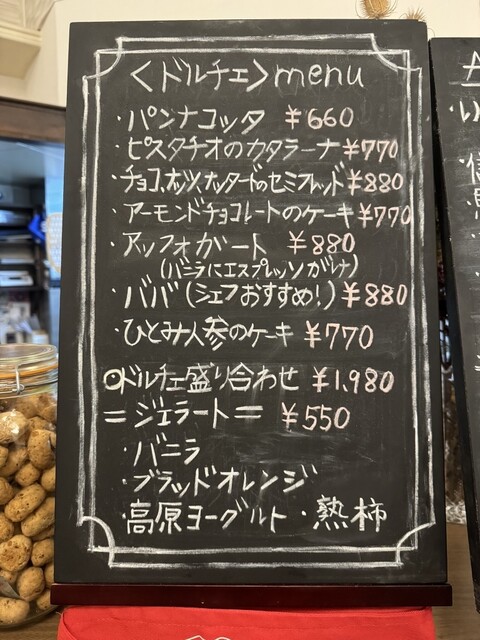 〈ドルチェ〉menu
・パンナコッタ ¥660
・ピスタチオのカタラーナ ¥770
・チョコ、ナッツ、カスタードのセミフレッド ¥880
・アーモンドチョコレートのケーキ ¥770
・アッフォガート ¥880
(バニラにエスプレッソがけ)
・ババ(シェフおすすめ!) ¥880
・ひとみ人参のケーキ ¥770
○ドルチェ盛り合わせ ¥1,980
=ジェラート= ¥550
・バニラ
・ブラッドオレンジ
・高原ヨーグルト ・熟柿